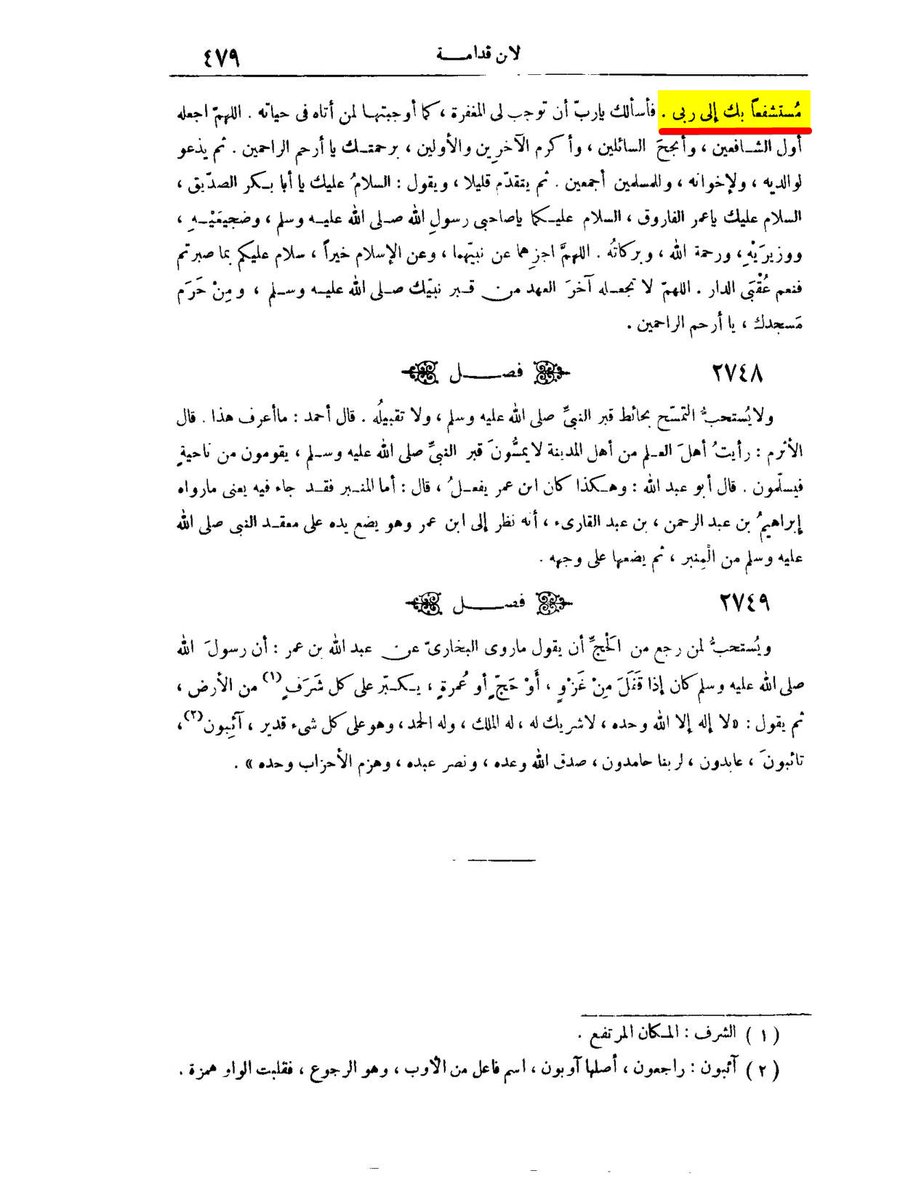 لابن قدامـــة ٤٧٩
مُستشفعاً بك إلى ربى . فأسألك يارب أن توجب لى المغفرة ، كما أوجبتها لمن أتاه فى حياته . اللهم اجعله
أول الشافعين ، وأنجحَ السائلين ، وأكرم الآخرين والأولين ، برحمتك يا أرحم الراحمين . ثم يدعو
لوالديه ، ولإخوانه ، وللمسلمين أجمعين . ثم يتقدّم قليلا ، ويقول : السلامُ عليك يا أبا بكر الصدّيق ،
السلام عليك ياعمر الفاروق ، السلام عليكما ياصاحبى رسولِ الله صلى الله عليه وسلم ، وضجيعَيْهِ ،
ووزيرَيْهِ ، ورحمة الله ، وبركاتُه . اللهمَّ اجزِهما عن نبيّهما ، وعن الإسلام خيراً ، سلام عليكم بما صبرتم
فنعم عُقْبَى الدار . اللهمّ لا تجعله آخرَ العهد من قبر نبيّك صلى الله عليه وسلم ، ومِنْ حَرَم
مَسجدك ، يا أرحم الراحمين .
٢٧٤٨ فصـــــل
ولا يُستحبُّ التمسّح بحائط قبر النبىِّ صلى الله عليه وسلم ، ولا تقبيلُه . قال أحمد : ماأعرف هذا . قال
الأثرم : رأيتُ أهلَ العلم من أهل المدينة لايمسُّونَ قبر النبىِّ صلى الله عليه وسلم ، يقومون من ناحيةٍ
فيسلّمون . قال أبو عبد الله : وهكذا كان ابن عمر يفعلُ ، قال : أما المنبر فقد جاء فيه يعنى مارواه
إبراهيمُ بن عبد الرحمن ، بن عبد القارىء ، أنه نظر إلى ابن عمر وهو يضع يده على مقعد النبى صلى الله
عليه وسلم من المِنبر ، ثم يضعها على وجهه .
٢٧٤٩ فصـــــل
ويُستحبُّ لمن رجع من الحَجِّ أن يقول ماروى البخارىّ عن عبد الله بن عمر : أن رسولَ الله
صلى الله عليه وسلم كان إذا قَفَلَ مِنْ غَزْوٍ ، أَوْ حَجٍّ أو عُمرةٍ ، يكبّر على كل شَرَفٍ (١) من الأرض ،
ثم يقول : «لا إله إلا الله وحده ، لاشريك له ، له الملك ، وله الحمد ، وهو على كل شىء قدير ، آئِبون (٢) ،
تائبونَ ، عابدون ، لربنا حامدون ، صدق الله وعده ، ونصر عبده ، وهزم الأحزاب وحده » .
( ١ ) الشرف : المكان المرتفع .
( ٢ ) آئبون : راجعون ، أصلها آوبون ، اسم فاعل من الأوب ، وهو الرجوع ، فقلبت الواو همزة .